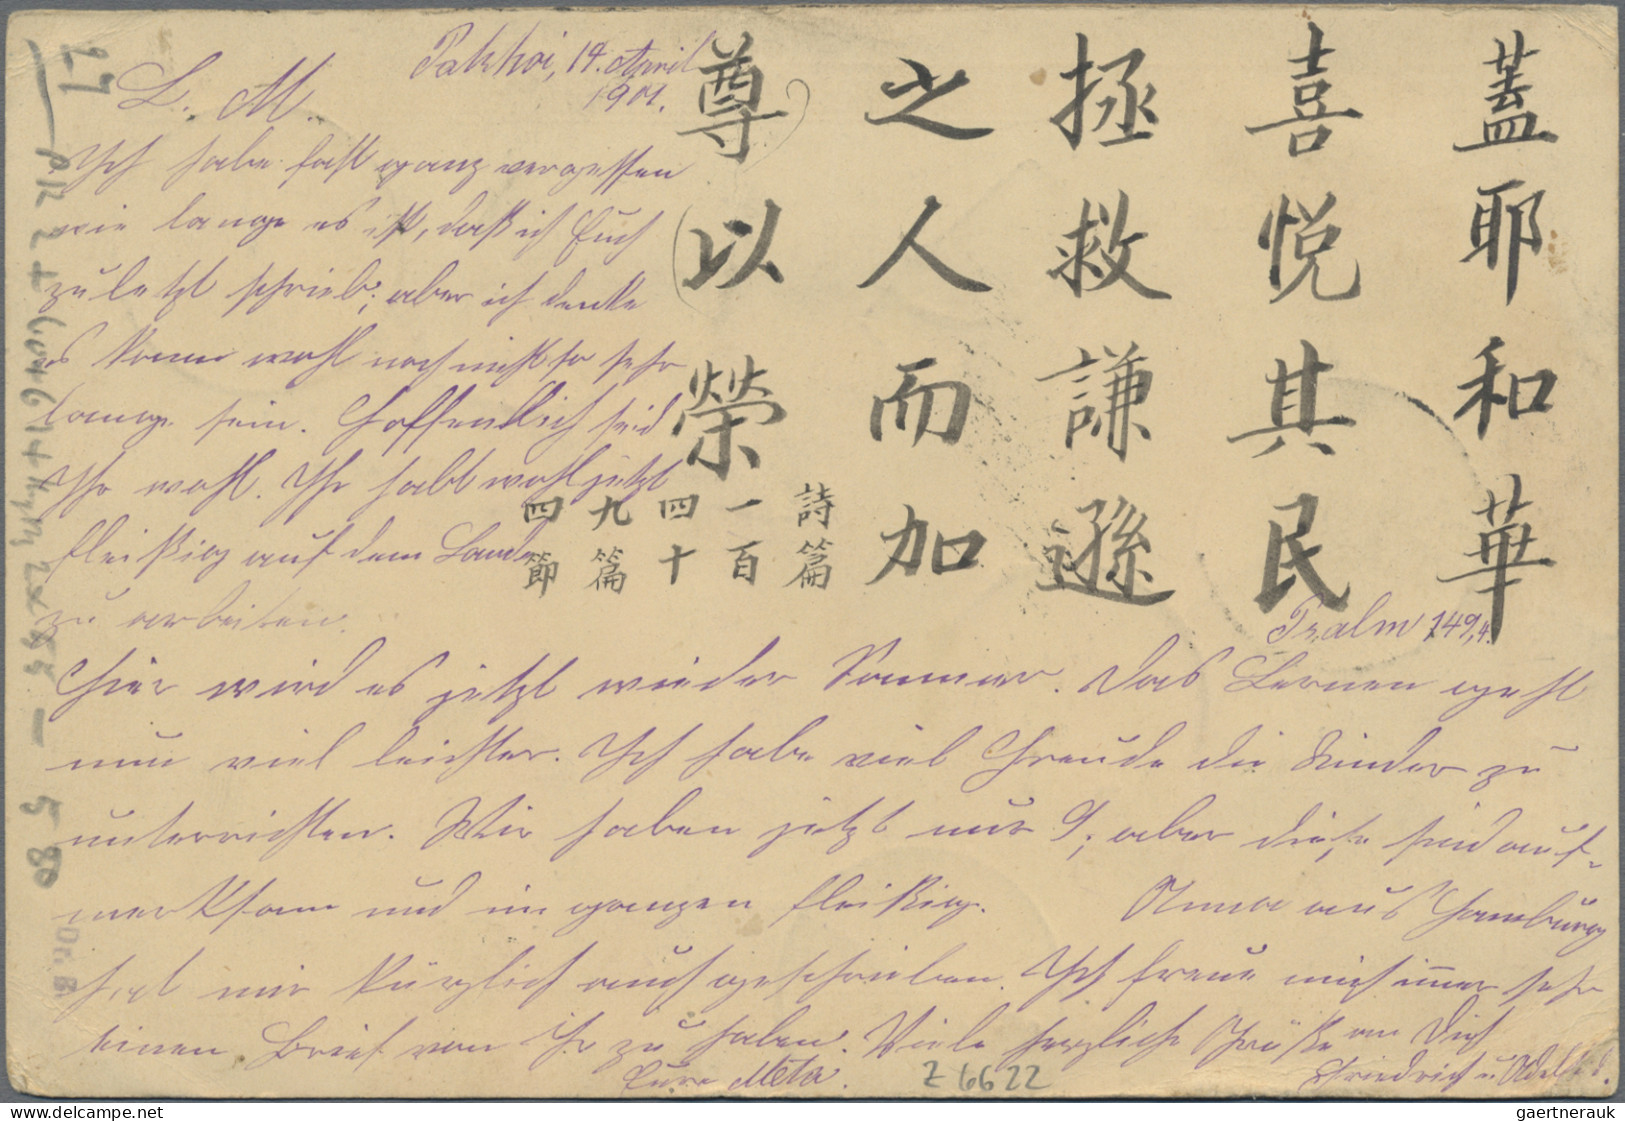 Pakhoi, 14. April
1901.
L. M.
Ich habe fast ganz vergessen
wie lange es ist, daß ich Euch
zuletzt schrieb; aber ich denke
es kann wohl noch nicht so sehr
lange sein. Hoffentlich seid
Ihr wohl. Ihr habt wohl jetzt
fleißig auf dem Lande
zu arbeiten.
蓋耶和華
喜悅其民
拯救謙遜
之人而加
尊以榮
詩篇
一百
四十
九篇
四節
Psalm 149,4.
Hier wird es jetzt wieder Sommer. Das Lernen geht
nun viel leichter. Ich habe viel Freude die Kinder zu
unterrichten. Wir haben jetzt nur 9; aber diese sind auf-
merksam und im ganzen fleißig. Anna aus Hamburg
hat mir kürzlich auch geschrieben. Ich freue mich immer sehr
einen Brief von ihr zu haben. Viele herzliche Grüße an Dich
Friedrich u. Adelh
Eure Meta.
Z 6622
27
gaertnerauk